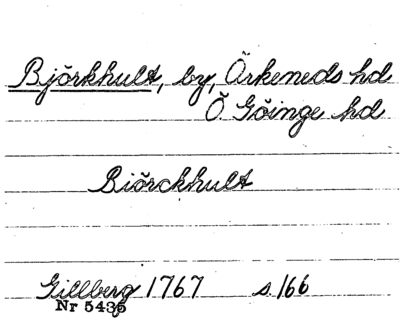 Björkhult, by, Örkeneds hd
Ö Göinge hd
Biörckhult
Gillberg 1767 s. 166
Nr 5435